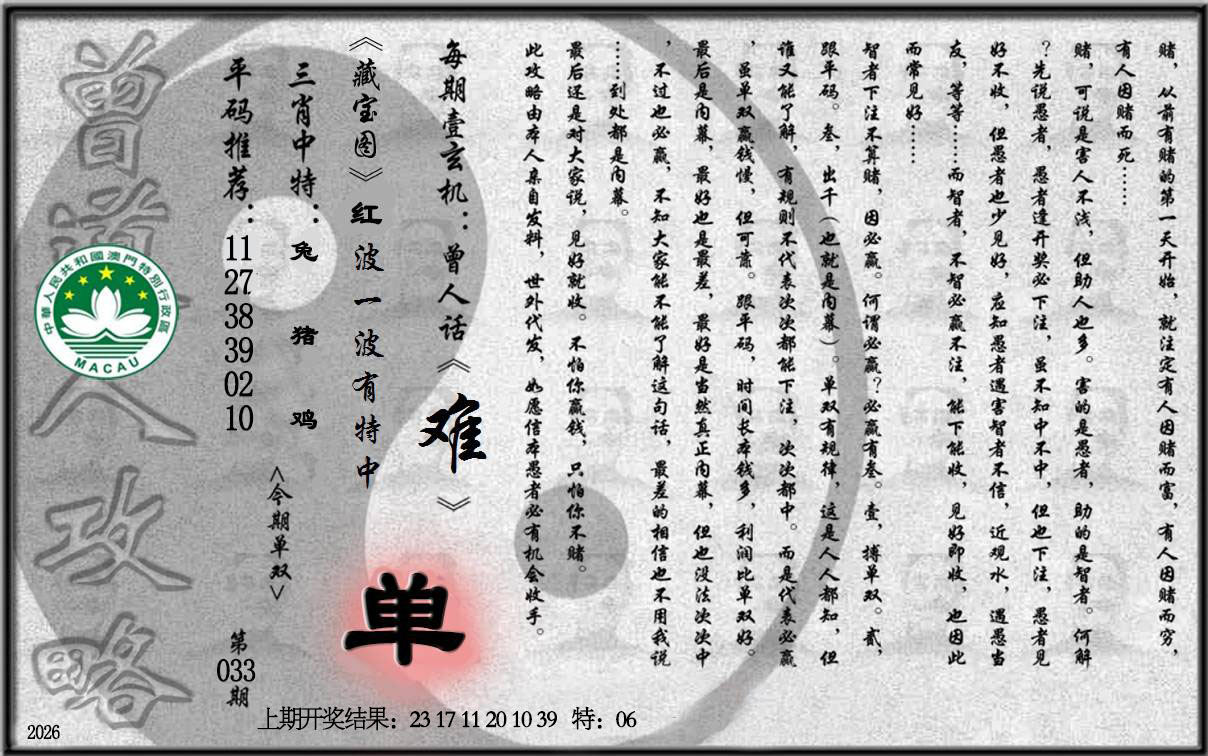 赌，从前有赌的第一天开始，就注定有人因赌而富，有人因赌而穷，
有人因赌而死……
赌，可说是害人不浅，但助人也多。害的是愚者，助的是智者。何解
？先说愚者，愚者逢开奖必下注，虽不知中不中，但也下注，愚者见
好不收，但愚者也少见好，应知愚者遇害智者不信，近观水，遇愚当
友，等等……而智者，不智必赢不注，能下能收，见好即收，也因此
而常见好……
智者下注不算赌，因必赢。何谓必赢？必赢有叁。壹，搏单双。贰，
跟平码。叁，出千（也就是内幕）。单双有规律，这是人人都知，但
谁又能了解，有规则不代表次次都能下注，次次都中。而是代表必赢
，虽单双赢钱慢，但可靠。跟平码，时间长本钱多，利润比单双好。
最后是内幕，最好也是最差，最好是当然真正内幕，但也没法次次中
，不过也必赢，不知大家能不能了解这句话，最差的相信也不用我说
……到处都是内幕。
最后还是对大家说，见好就收。不怕你赢钱，只怕你不赌。
此攻略由本人亲自发料，世外代发，如愿信本愚者必有机会收手。
每期壹玄机：曾人话《难》
《藏宝图》红波一波有特中
单
三肖中特：兔 猪 鸡
<今期单双>
平码推荐：11 27 38 39 02 10
第033期
曾道人攻略
中華人民共和國澳門特別行政區
MACAU
上期开奖结果：23 17 11 20 10 39 特：06
2026